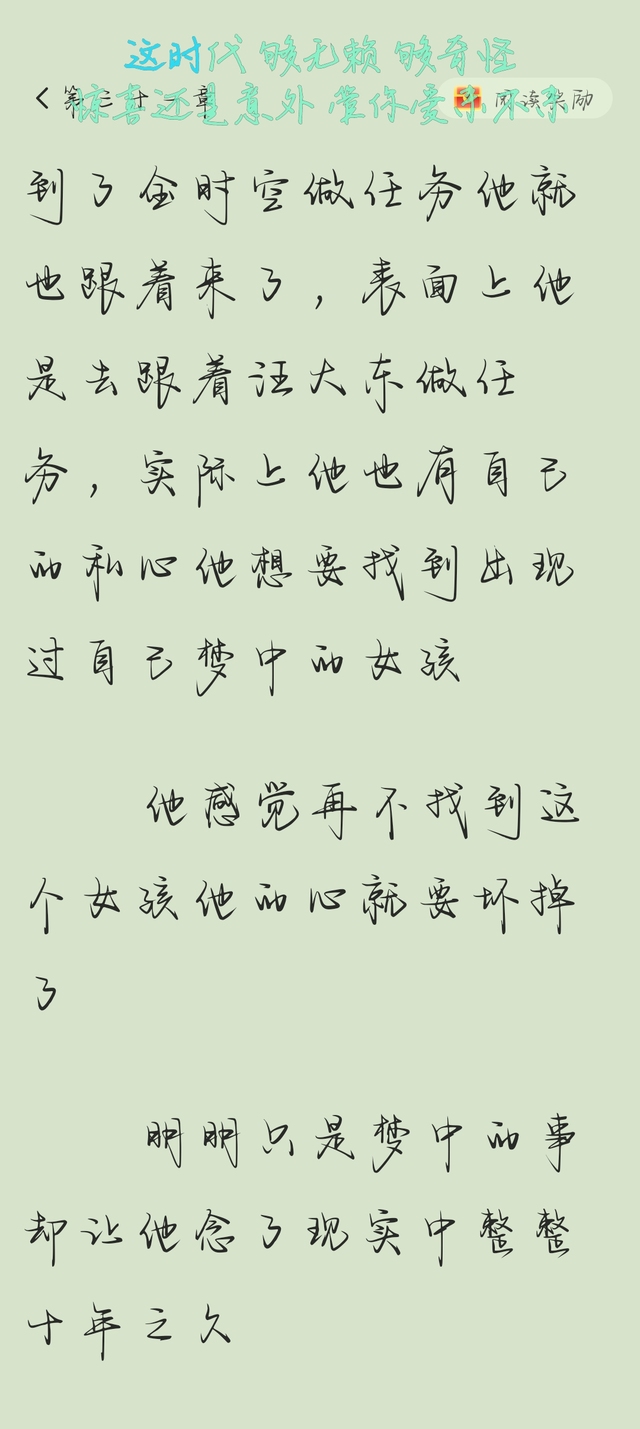 这时代 够无赖 够奇怪
第三十二章
惊喜还是意外 管你爱来不来
阅读奖励
到了金时空做任务他就
也跟着来了，表面上他
是去跟着汪大东做任
务，实际上他也有自己
的私心他想要找到出现
过自己梦中的女孩
他感觉再不找到这
个女孩他的心就要坏掉
了
明明只是梦中的事
却让他念了现实中整整
十年之久